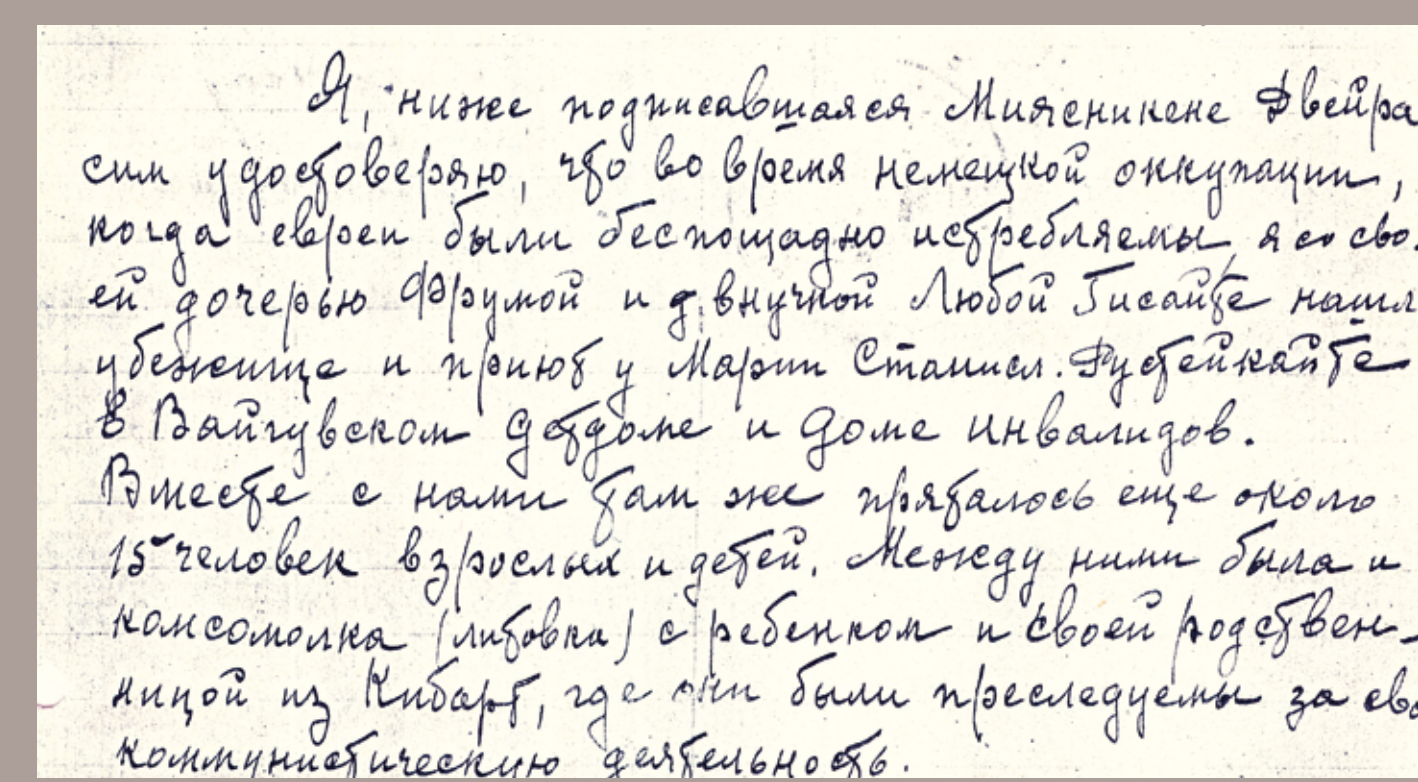 Я, ниже подписавшаяся Миясникене Двейра
сим удостоверяю, что во время немецкой оккупации,
когда евреи были беспощадно истребляемы я со сво-
ей дочерью Фрумой и внучкой Любой Гисайте нашл
убежище и приют у Марии Станисл. Рустейкайте
в Вайгувском детдоме и доме инвалидов.
Вместе с нами там же пряталось еще около
15 человек взрослых и детей. Между ними была и
комсомолка (литовка) с ребенком и своей родствен-
ницой из Кибарт, где они были преследуемы за сво
коммунистическую деятельность.